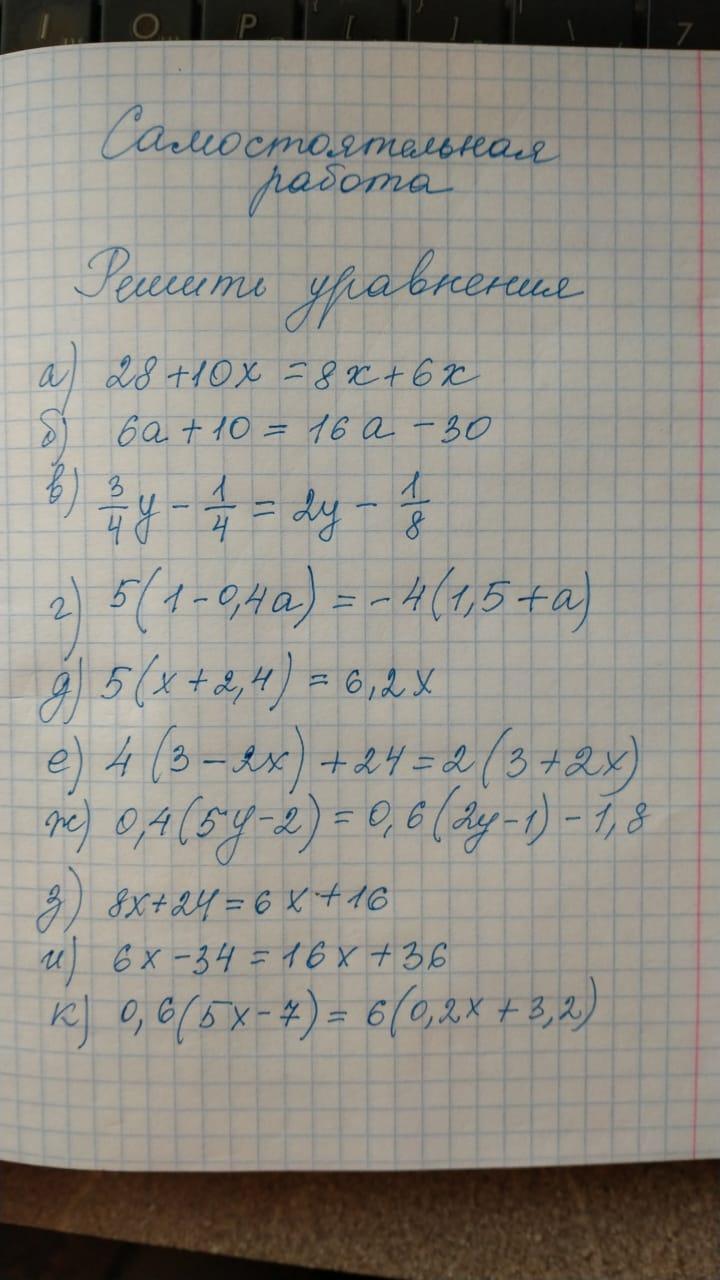 I O P { [ } ] | \ 7
Самостоятельная
работа
Решить уравнения
а) 28+10x=8x+6x
б) 6a+10=16a-30
в) 3/4y - 1/4 = 2y - 1/8
г) 5(1-0,4a)=-4(1,5+a)
д) 5(x+2,4)=6,2x
е) 4(3-2x)+24=2(3+2x)
ж) 0,4(5y-2)=0,6(2y-1)-1,8
з) 8x+24=6x+16
и) 6x-34=16x+36
к) 0,6(5x-7)=6(0,2x+3,2)